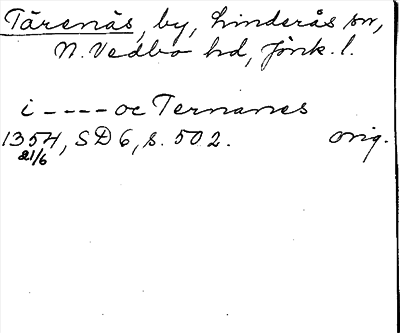 Tärenäs, by, Linderås sn,
N. Vedbo hd, Jönk. l.
i - - - - oc Ternanes
1354, SD 6, s. 502. orig.
21/6